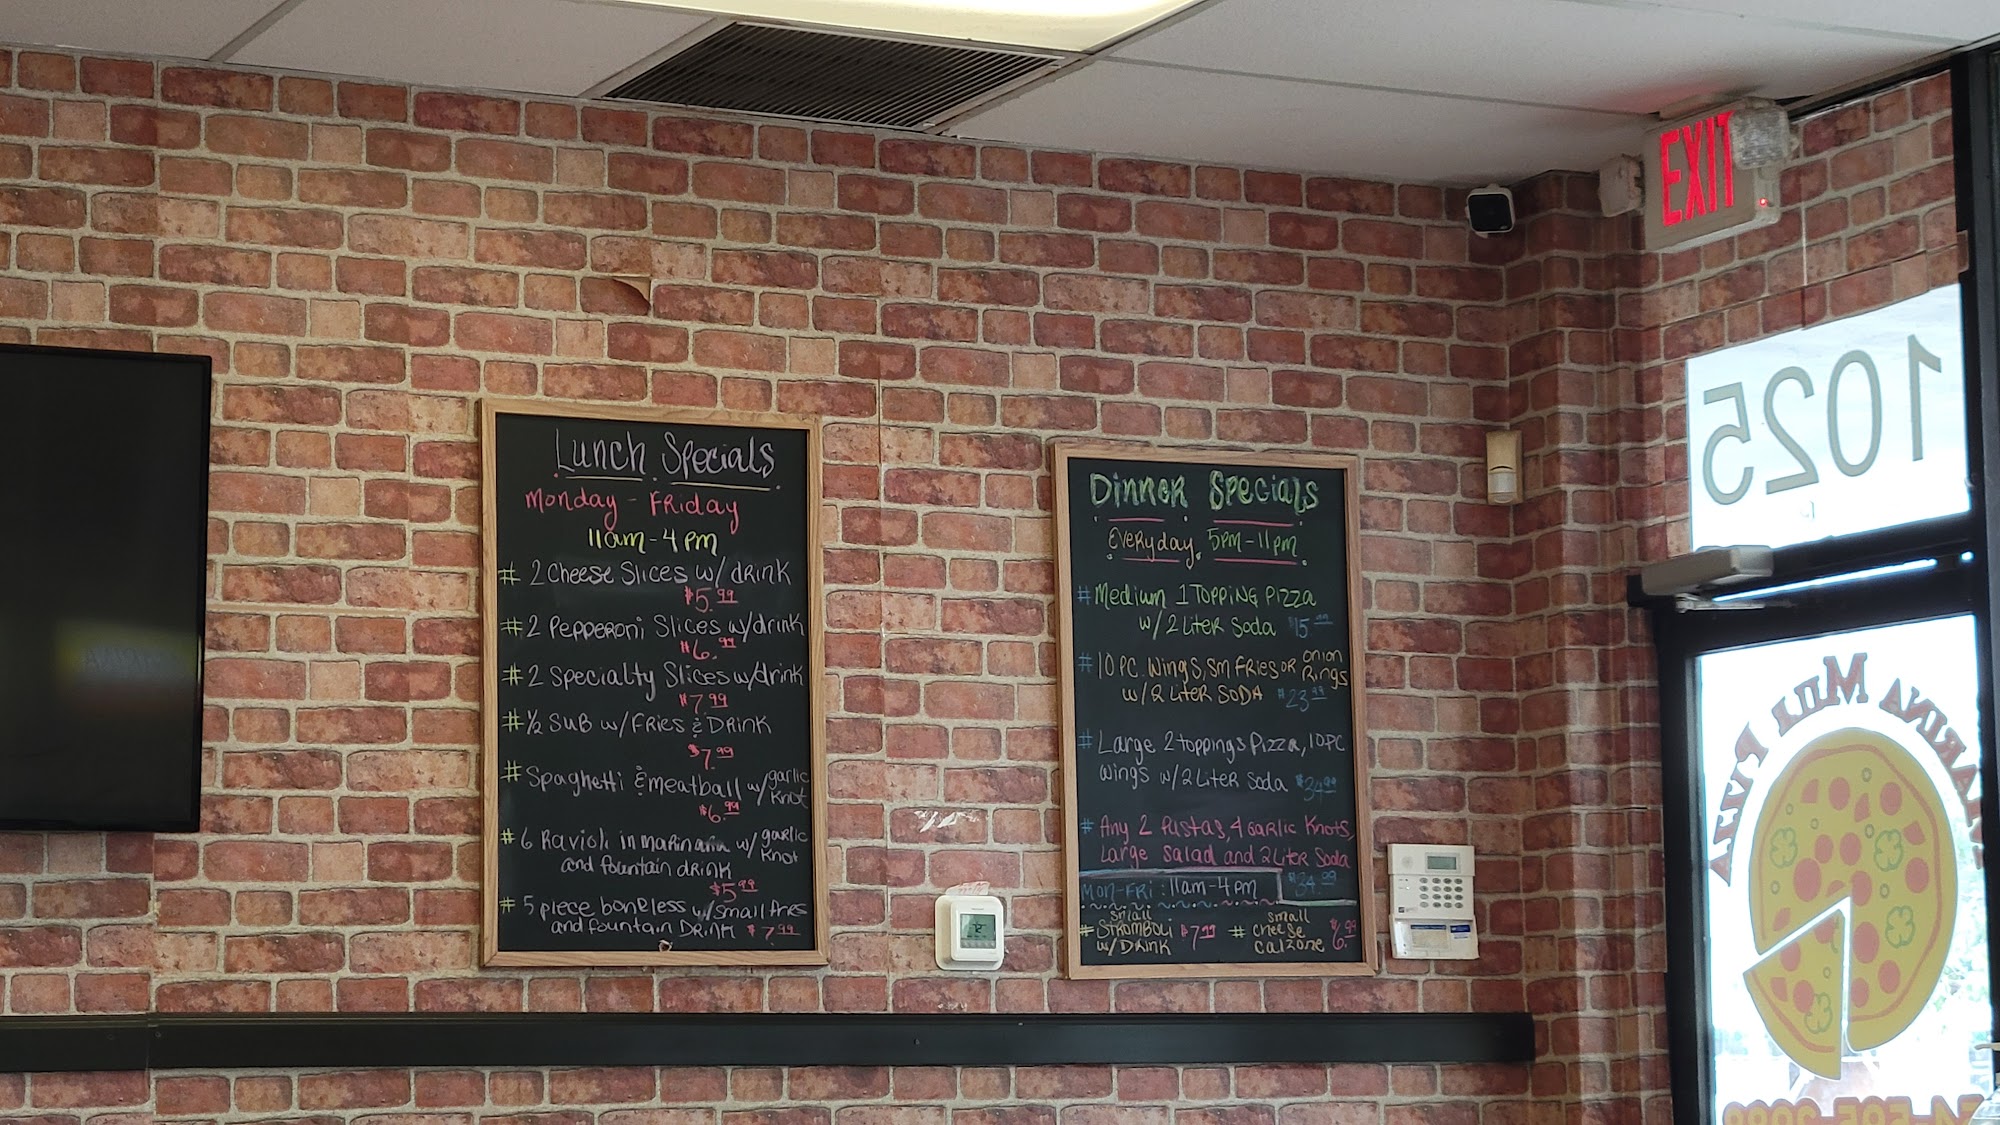 EXIT
1025
Lunch Specials
Monday - Friday
11am - 4pm
# 2 Cheese Slices w/ drink
$5.99
# 2 Pepperoni Slices w/drink
$6.99
# 2 Specialty Slices w/drink
$7.99
# 1/2 Sub w/ Fries & Drink
$7.99
# Spaghetti & meatball w/ garlic knot
$6.99
# 6 Ravioli in marinara w/ garlic knot
and fountain drink
$5.99
# 5 piece boneless w/ small fries
and fountain Drink $7.99
Dinner Specials
Everyday 5pm - 11pm
# Medium 1 Topping Pizza
w/ 2 Liter Soda $15.99
# 10 PC. Wings, Sm Fries or Onion Rings
w/ 2 Liter Soda $23.99
# Large 2 toppings Pizza, 10 PC
wings w/ 2 Liter Soda $34.99
# Any 2 Pastas, 4 Garlic Knots,
Large Salad and 2 Liter Soda
$34.99
Mon-Fri: 11am-4pm
# small Stromboli w/ Drink $7.99
# small cheese calzone $6.99
MARINA MILE PIZZA